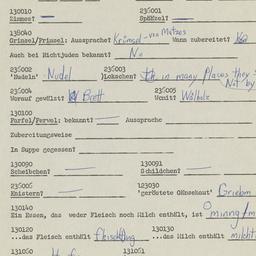 130010 236001
Zismes? — Spätzel? —
138040
Grimsel/Prinsel: Aussprache? Krümsel - von Matzes Wann zubereitet?
Auch bei Nichtjuden bekannt? No
236002 236003
'Nudeln' Nudel )Lokschen? in many Places they
236004 236005 Not by
Worauf gewälzt? Brett Womit? Wälholz
130100
Farfel/Fervel: bekannt? — Aussprache
Zubereitungsweise
In Suppe gegessen?
130090 130091
Scheibchen? Schildchen?
236005 123030
Knistern? 'geröstete Gänsehaut'
130140
Ein Essen, das weder Fleisch noch Milch enthält, ist
130120 130130
...das Fleisch enthält fleischding ...das Milch enthält
131050 131051